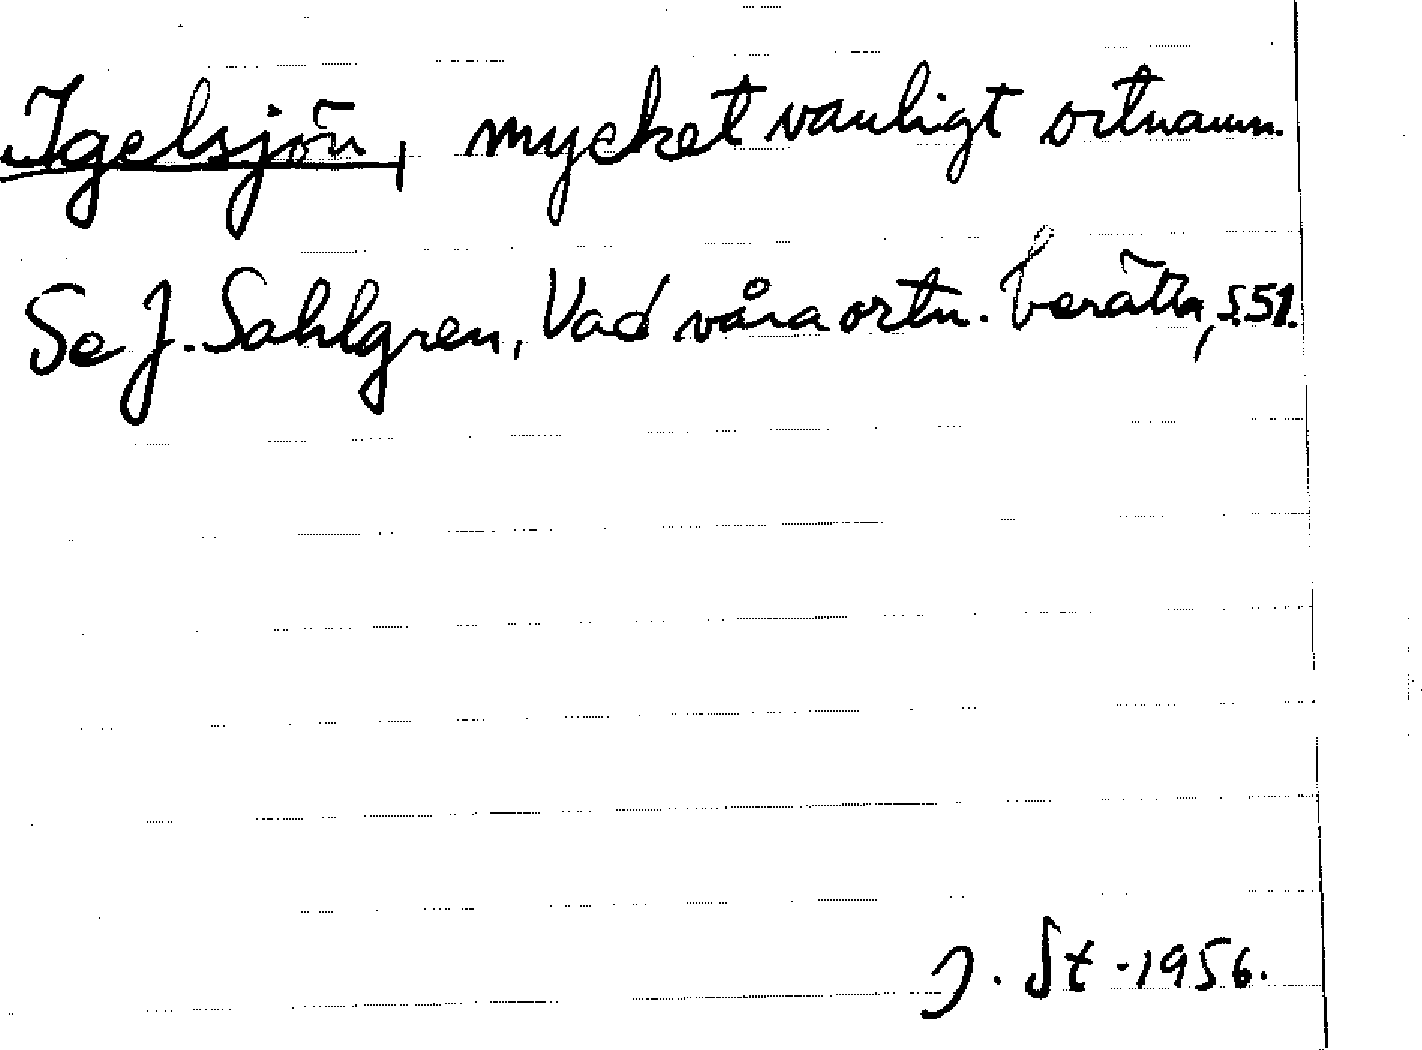 Igelsjön, mycket vanligt ortnamn.
Se J. Sahlgren, Vad våra ortn. berätta, s.51.
J. St -1956.